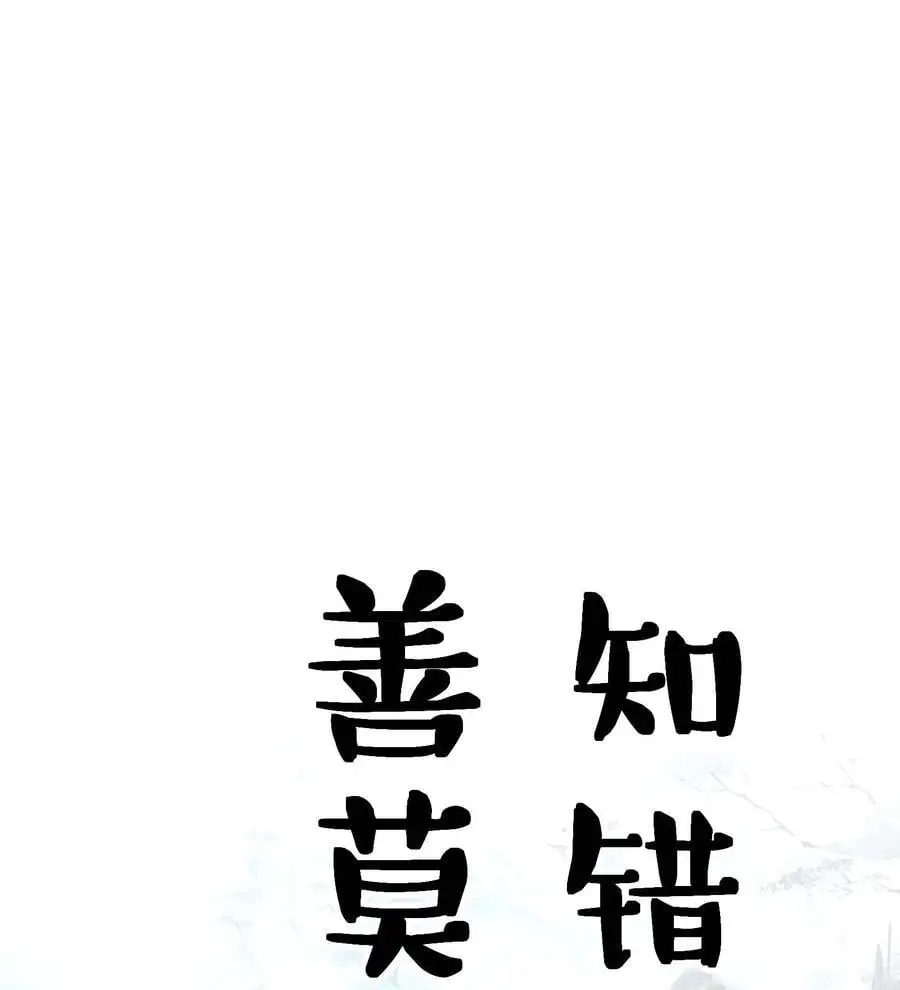 知错
善莫